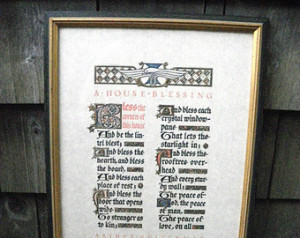 A · HOUSE · BLESSING
Bless the
corners of
this house
And be the lin
tel blest;
And bless the
hearth, and bless
the board,
And bless each
place of rest;
And bless the
door that opens
wide
To stranger as
to kin;
And bless each
crystal window-
pane
That lets the
starlight in;
And bless the
rooftree over-
head
And every stur-
dy wall;
The peace of
God, the peace
of man,
The peace of
love, on all